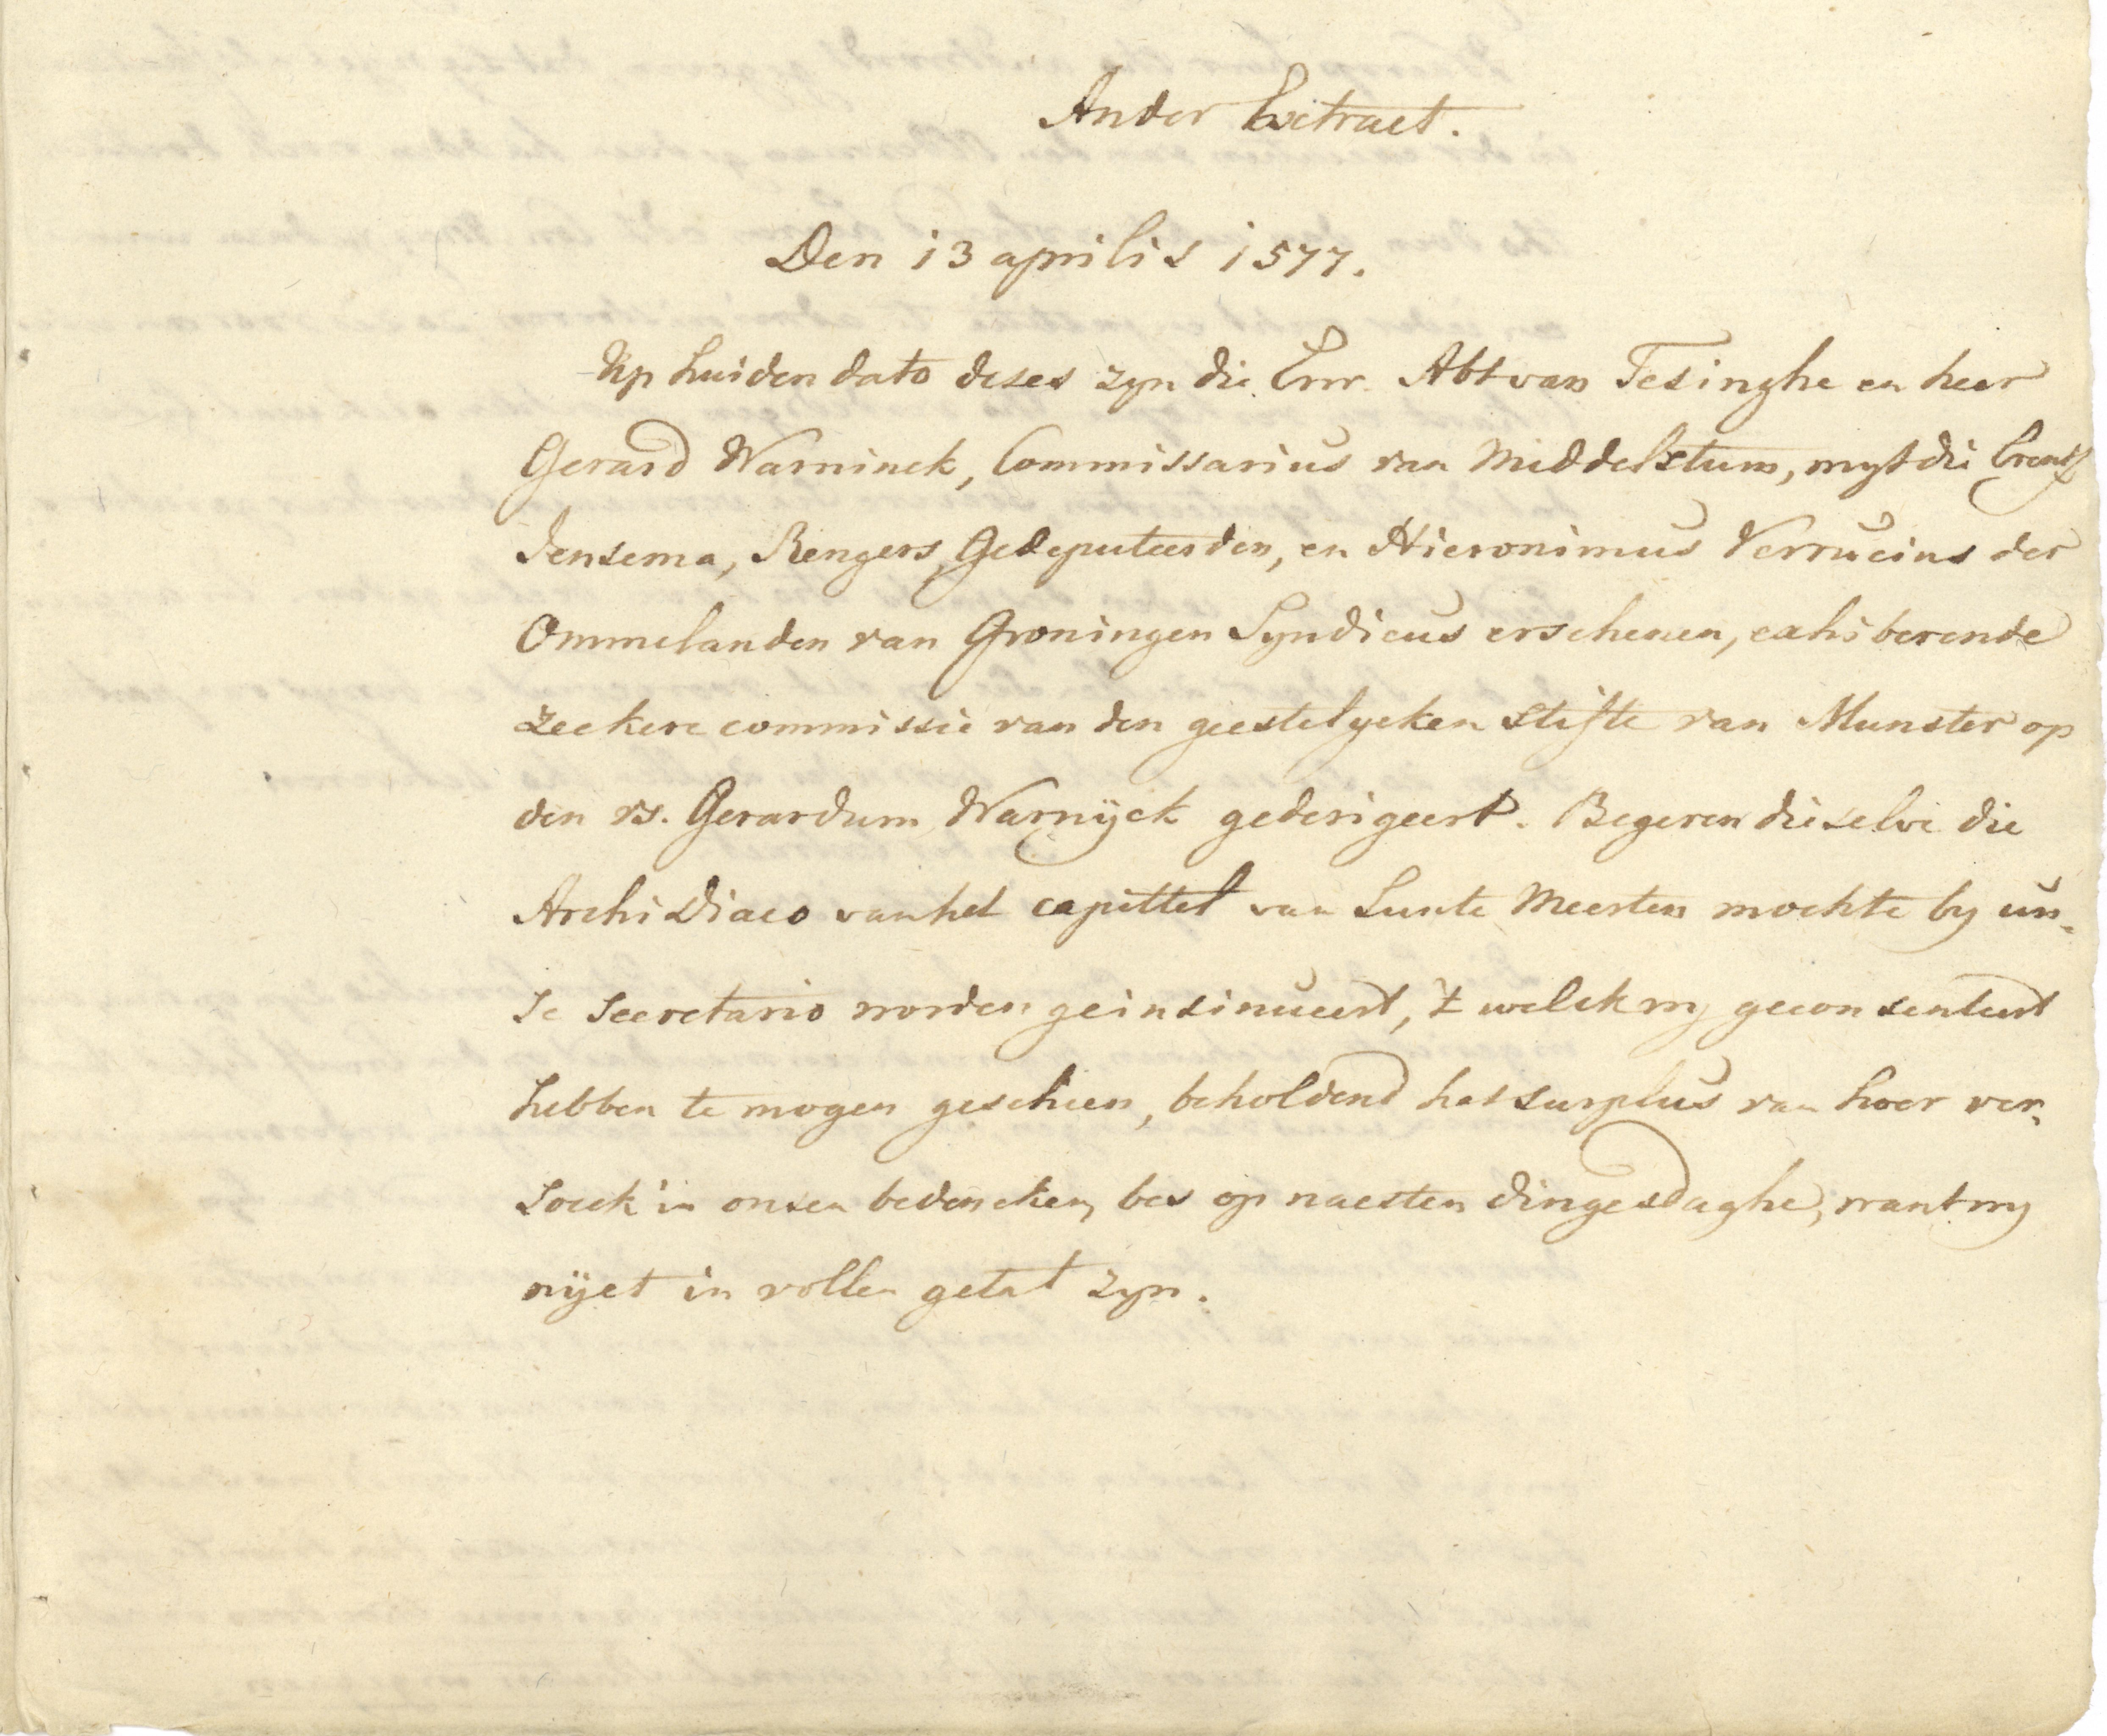 Ander Extract.
Den 13 aprilis 1577.
Up huiden dato deses zyn die Err. Abt van Tesinghe en heer
Gerard Warninck, Commissarius van Middelstum, myt die Erentf
Jensema, Rengers, Gedeputeerden, en Hieronimus Verrucius der
Ommelanden van Groningen Syndicus erschenen, exhiberende
zeekere commissie van den geestelycken stifte van Munster op
den vs. Gerardum Warnÿck gederigeert. Begeren dieselve die
Archi Diaco van het capittel van Sunte Meerten mochte by un-
se Secretario worden geinsinueert, 't welck wy geconsenteert
hebben te mogen geschien, beholdend het surplus van hoer ver-
soeck in onsen bedencken, bes op naesten dingesdaghe, want wy
nÿet in vollen getal zyn.